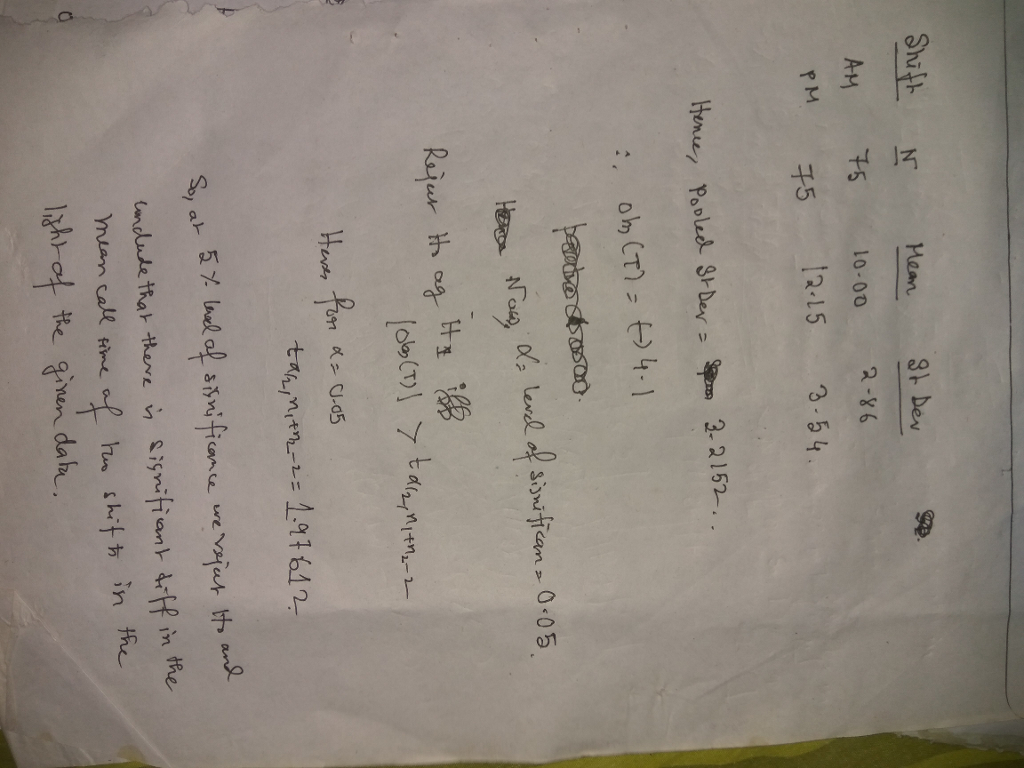 Shift N Mean St Dev
AM 75 10.00 2.86
PM 75 12.15 3.54.
Hence, Pooled St Dev = 3.2152..
∴ obs(T) = (-) 4.1
Now, α = level of significan = 0.05.
Reject H0 ag H1 iff
|obs(T)| > tα/2, n1+n2-2
Here, for α = 0.05
tα/2, n1+n2-2 = 1.97612.
So, at 5% level of significance we reject H0 and
conclude that there is significant diff in the
mean call time of two shifts in the
light of the given data.